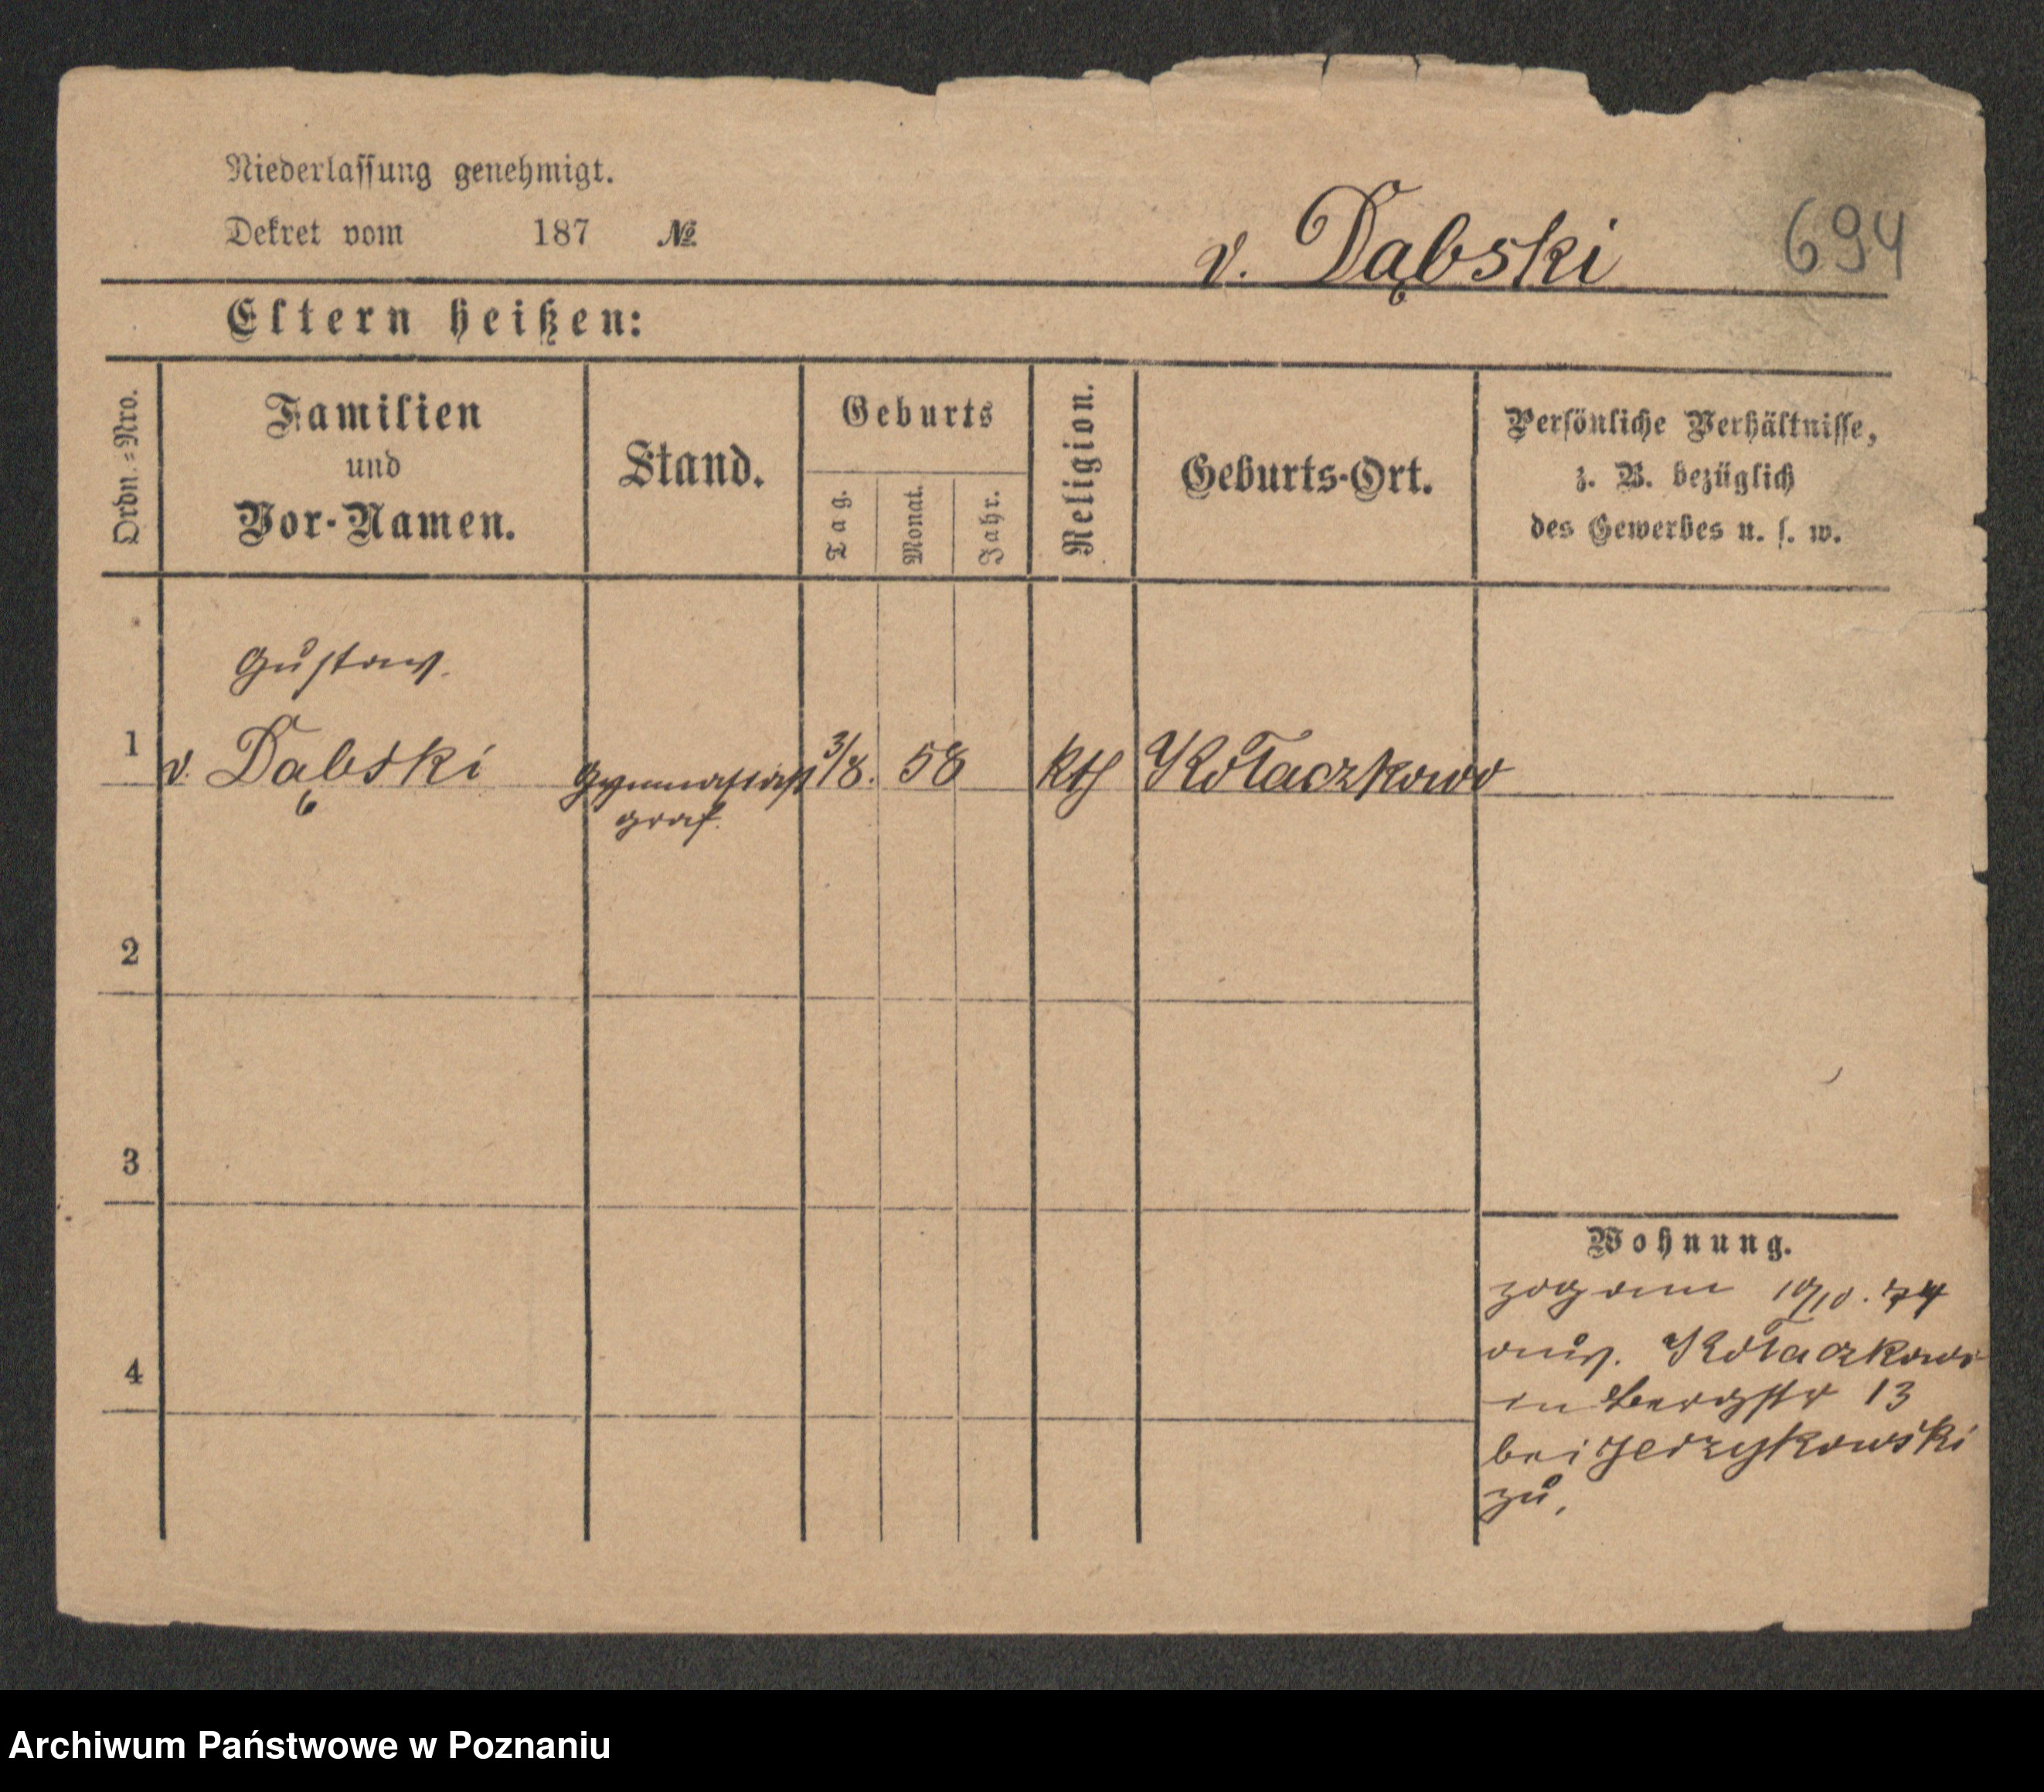 Niederlassung genehmigt.
Dekret vom 187 №
v. Dąbski 694
Eltern heißen:
Ordn.=Nro.
Familien
und
Vor-Namen.
Stand.
Geburts
Tag.
Monat.
Jahr.
Religion.
Geburts-Ort.
Persönliche Verhältnisse,
z. B. bezüglich
des Gewerbes u. s. w.
Gustav.
1 v. Dąbski Gymnasiast 3/8. 58 kth Kołaczkowo
graf.
2
3
4
Wohnung.
zog am 10/10. 74
aus. Kołaczkowo
in Bergstr 13
bei Jerzykowski
zu.
Archiwum Państwowe w Poznaniu